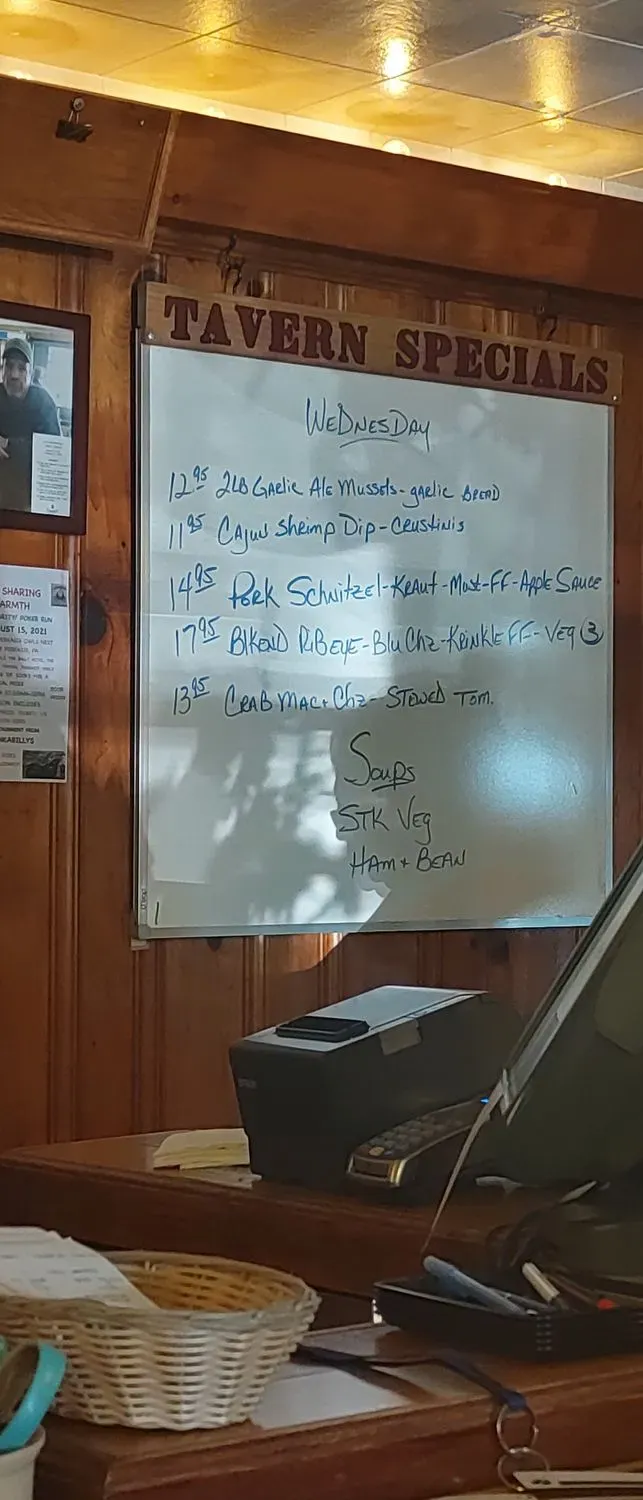 TAVERN SPECIALS
WEDNESDAY
12.95 2LB Garlic Ale Mussels - garlic BREAD
11.95 Cajun Shrimp Dip - Crustinis
14.95 Pork Schnitzel - Kraut - Must - FF - Apple Sauce
17.95 Blkend Ribeye - Blu Chz - Krinkle FF - Veg 3
13.95 CRAB MAC + Chz - STEWED TOM.
Soups
STK Veg
HAM + BEAN
SHARING
ARMTH
RITY POKER RUN
UST 15, 2021
KABILLYS
EPSON